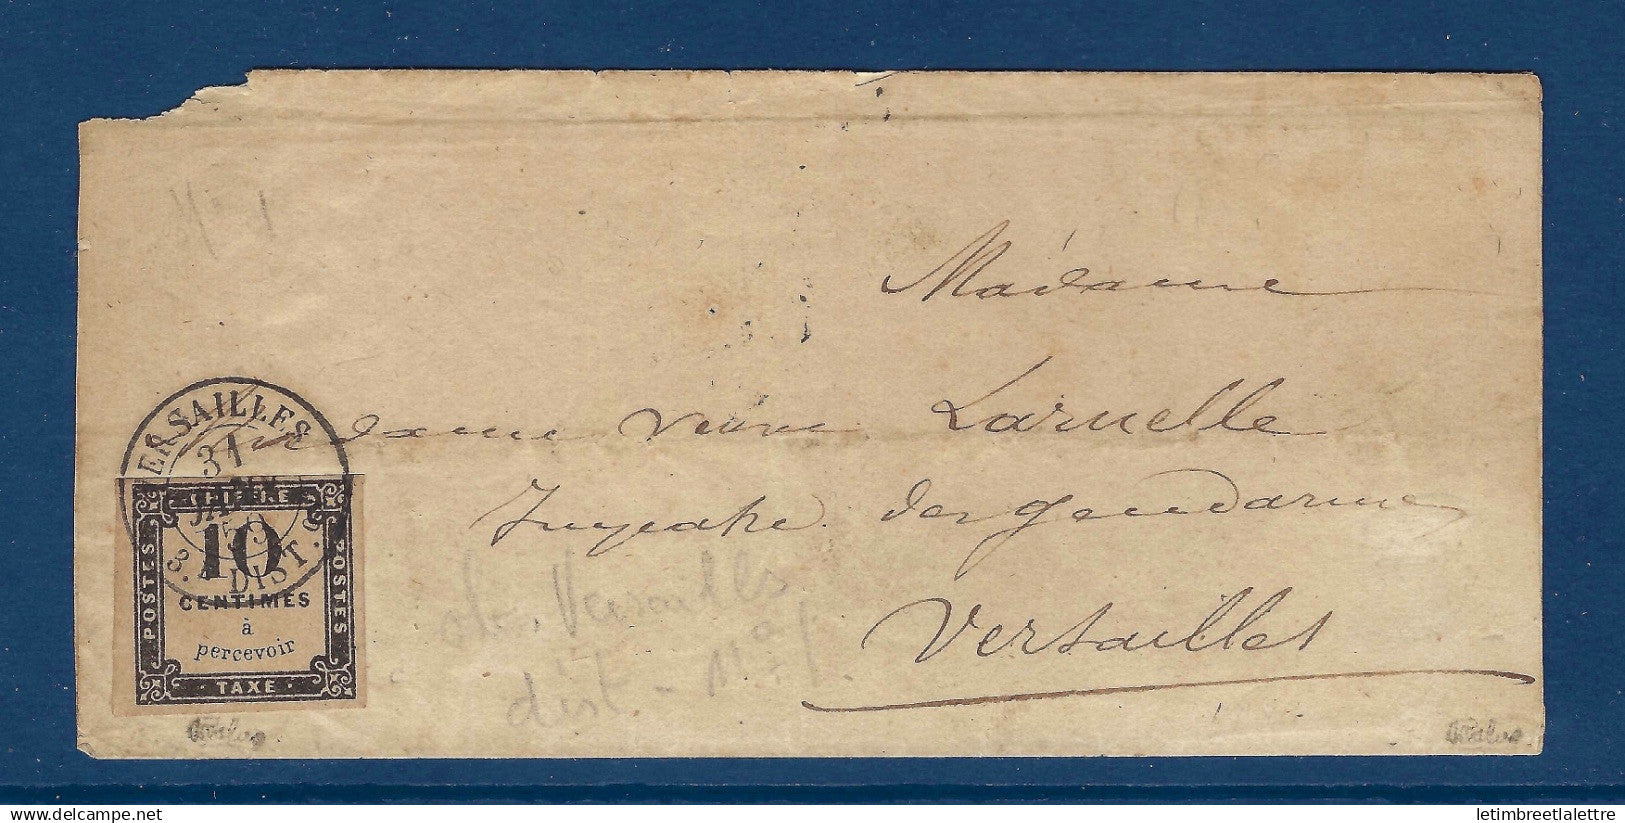 N° 1
Madame
Veuve Laruelle
Impasse des gendarmes
Versailles
VERSAILLES
31
JANV
59
3. DIST.
CHIFFRE
POSTES
10
CENTIMES
à
percevoir
POSTES
TAXE
Versailles
dist - N° 1
letimbreetlalettre